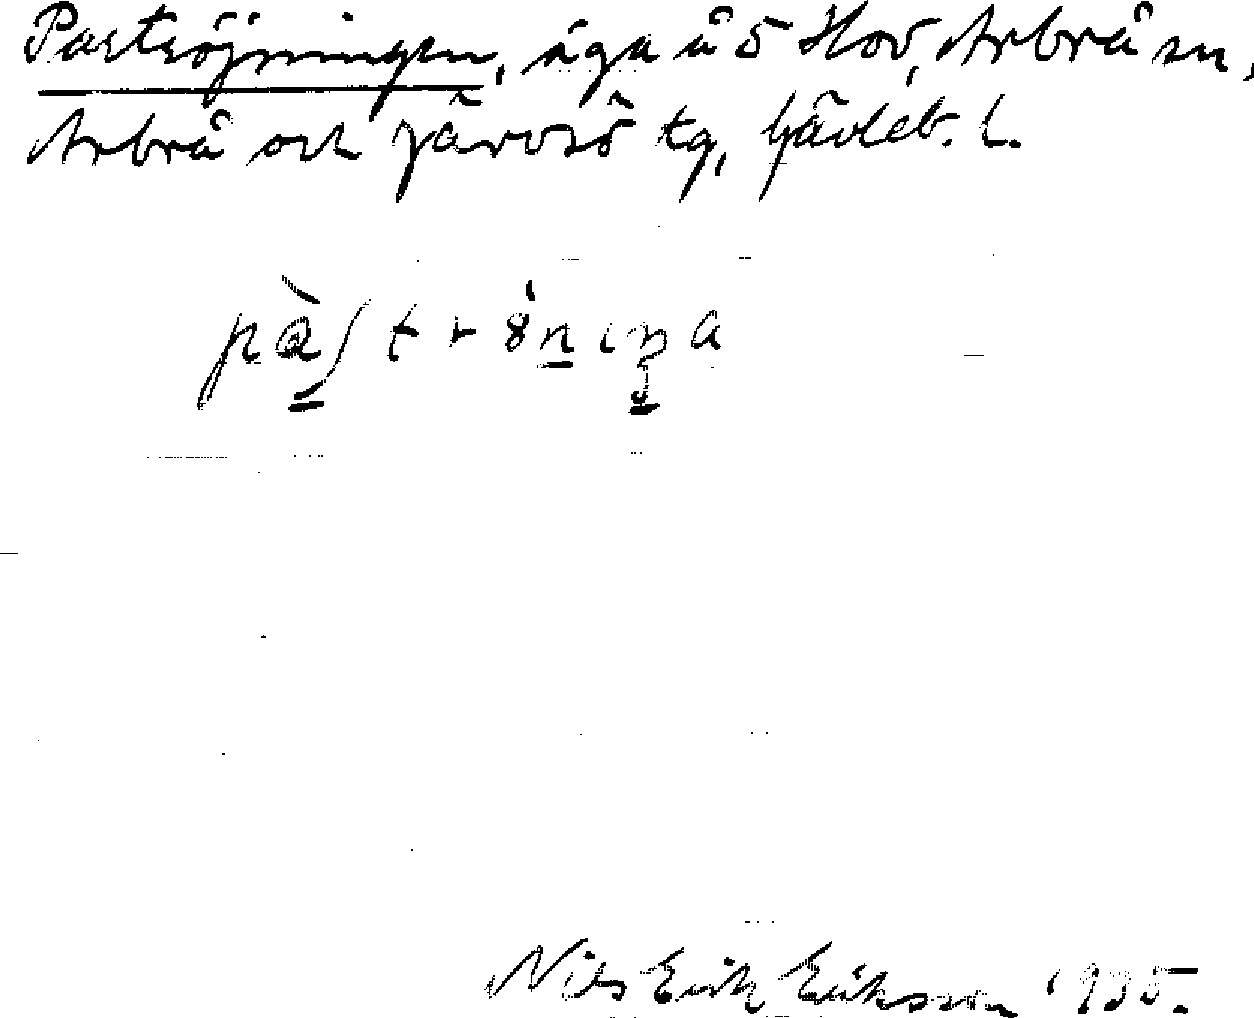 Partröjningen, äga å 5 Hov, Arbrå sn,
Arbrå och Järvsö tg, Gävleb. l.
Nils Erik Eriksson 1935.